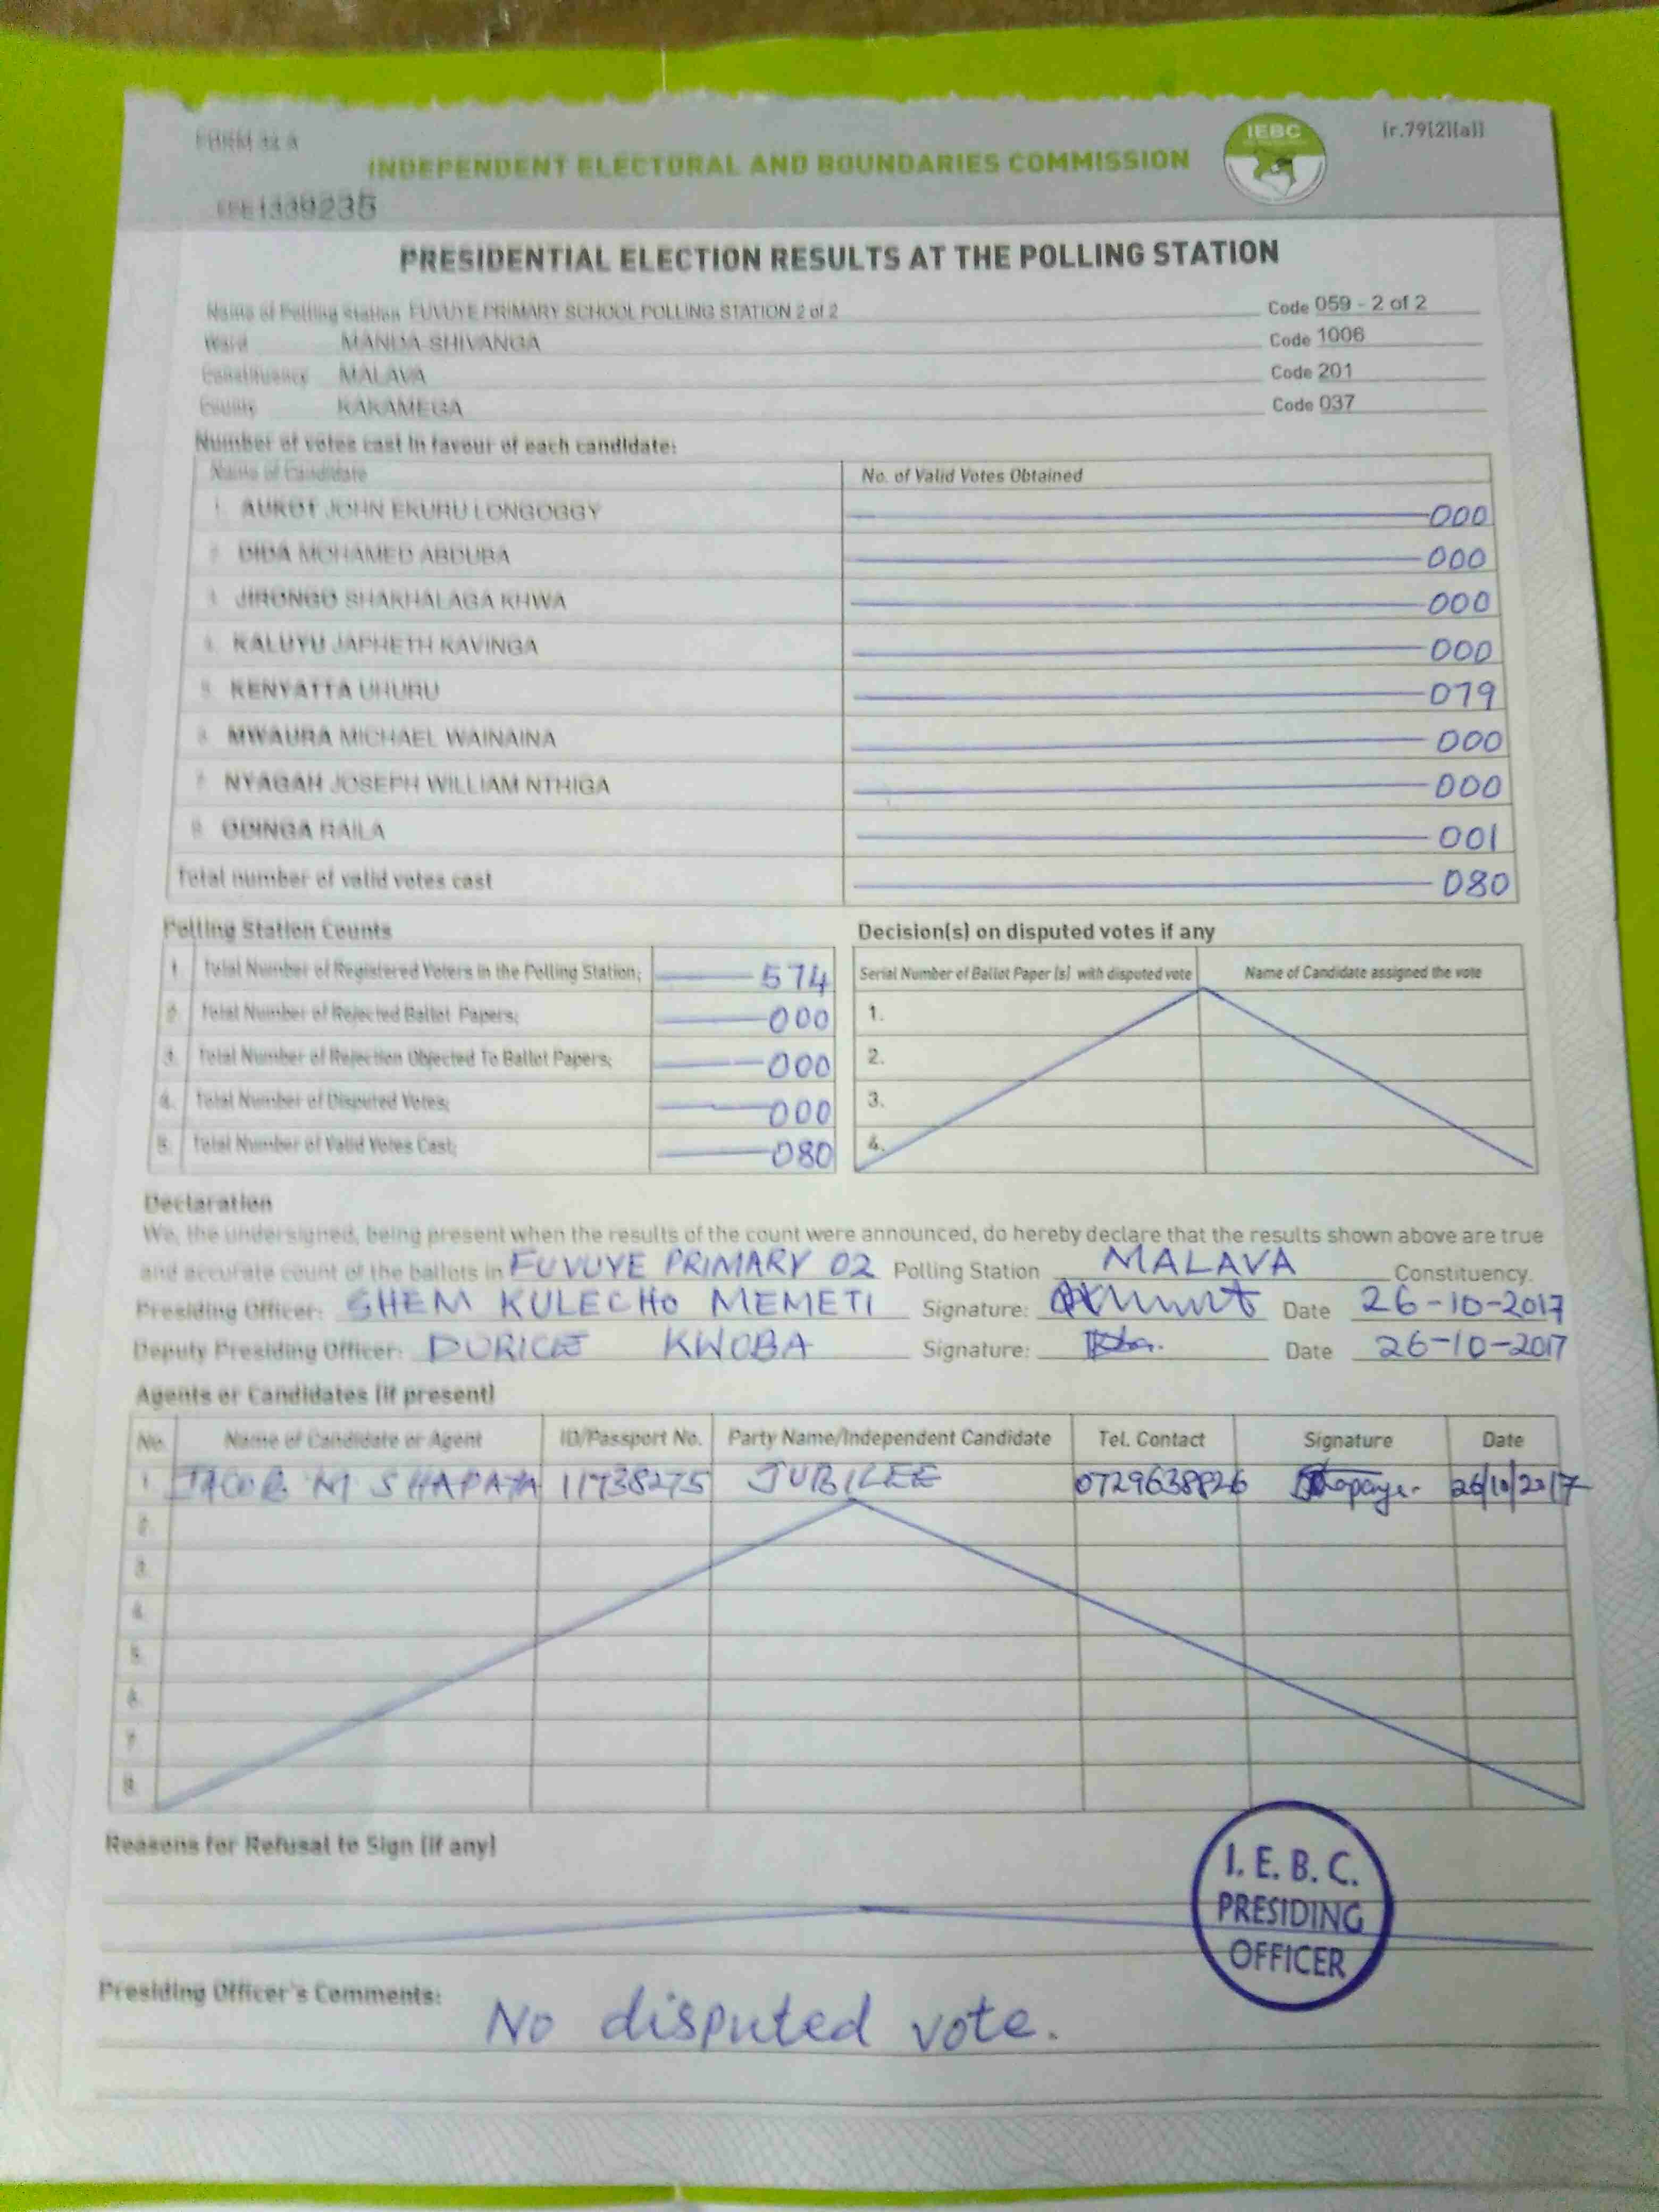 FORM 34 A
[r.79(2)(a)]
IEBC
INDEPENDENT ELECTORAL AND BOUNDARIES COMMISSION
1339235
PRESIDENTIAL ELECTION RESULTS AT THE POLLING STATION
Name of Polling Station FUVUYE PRIMARY SCHOOL POLLING STATION 2 of 2 Code 059 - 2 of 2
Ward MANDA-SHIVANGA Code 1006
Constituency MALAVA Code 201
County KAKAMEGA Code 037
Number of votes cast in favour of each candidate:
Name of Candidate No. of Valid Votes Obtained
1. AUKOT JOHN EKURU LONGOGGY 000
2. DIDA MOHAMED ABDUBA 000
3. JIRONGO SHAKHALAGA KHWA 000
4. KALUYU JAPHETH KAVINGA 000
5. KENYATTA UHURU 079
6. MWAURA MICHAEL WAINAINA 000
7. NYAGAH JOSEPH WILLIAM NTHIGA 000
8. ODINGA RAILA 001
Total number of valid votes cast 080
Polling Station Counts
1. Total Number of Registered Voters in the Polling Station; 574
2. Total Number of Rejected Ballot Papers; 000
3. Total Number of Rejection Objected To Ballot Papers; 000
4. Total Number of Disputed Votes; 000
5. Total Number of Valid Votes Cast; 080
Decision(s) on disputed votes if any
Serial Number of Ballot Paper (s) with disputed vote Name of Candidate assigned the vote
1.
2.
3.
4.
Declaration
We, the undersigned, being present when the results of the count were announced, do hereby declare that the results shown above are true
and accurate count of the ballots in FUVUYE PRIMARY 02 Polling Station MALAVA Constituency.
Presiding Officer: SHEM KULECHO MEMETI Signature: Date 26-10-2017
Deputy Presiding Officer: KWOBA Signature: Date 26-10-2017
Agents or Candidates (if present)
No. Name of Candidate or Agent ID/Passport No. Party Name/Independent Candidate Tel. Contact Signature Date
1 JACOB M SHAPAYA 11738275 JUBILEE 0729638826 26/10/2017
2.
3.
4.
5.
6.
7
8.
Reasons for Refusal to Sign (if any)
I. E. B. C.
PRESIDING
OFFICER
Presiding Officer's Comments: No disputed vote.